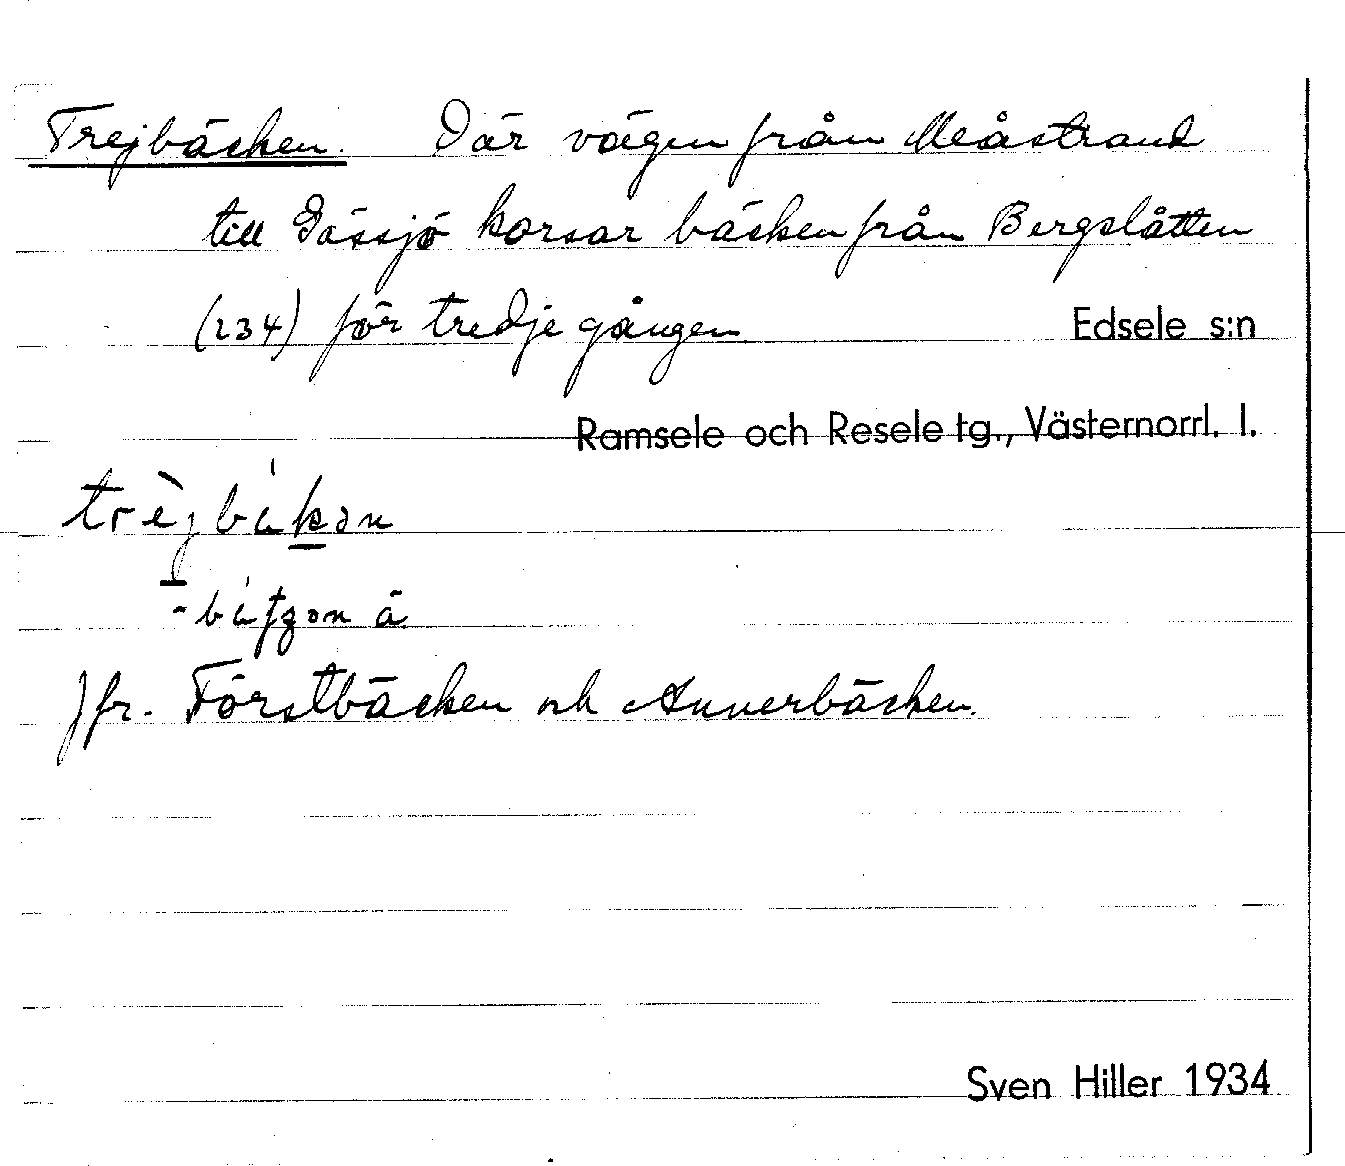 Trejbäcken. Där vägen från Meåstrand
till Gässjö korsar bäcken från Bergslåtten
(234) för tredje gången
Edsele s:n
Ramsele och Resele tg., Västernorrl. l.
jfr. Förstbäcken och Annerbäcken.
Sven Hiller 1934